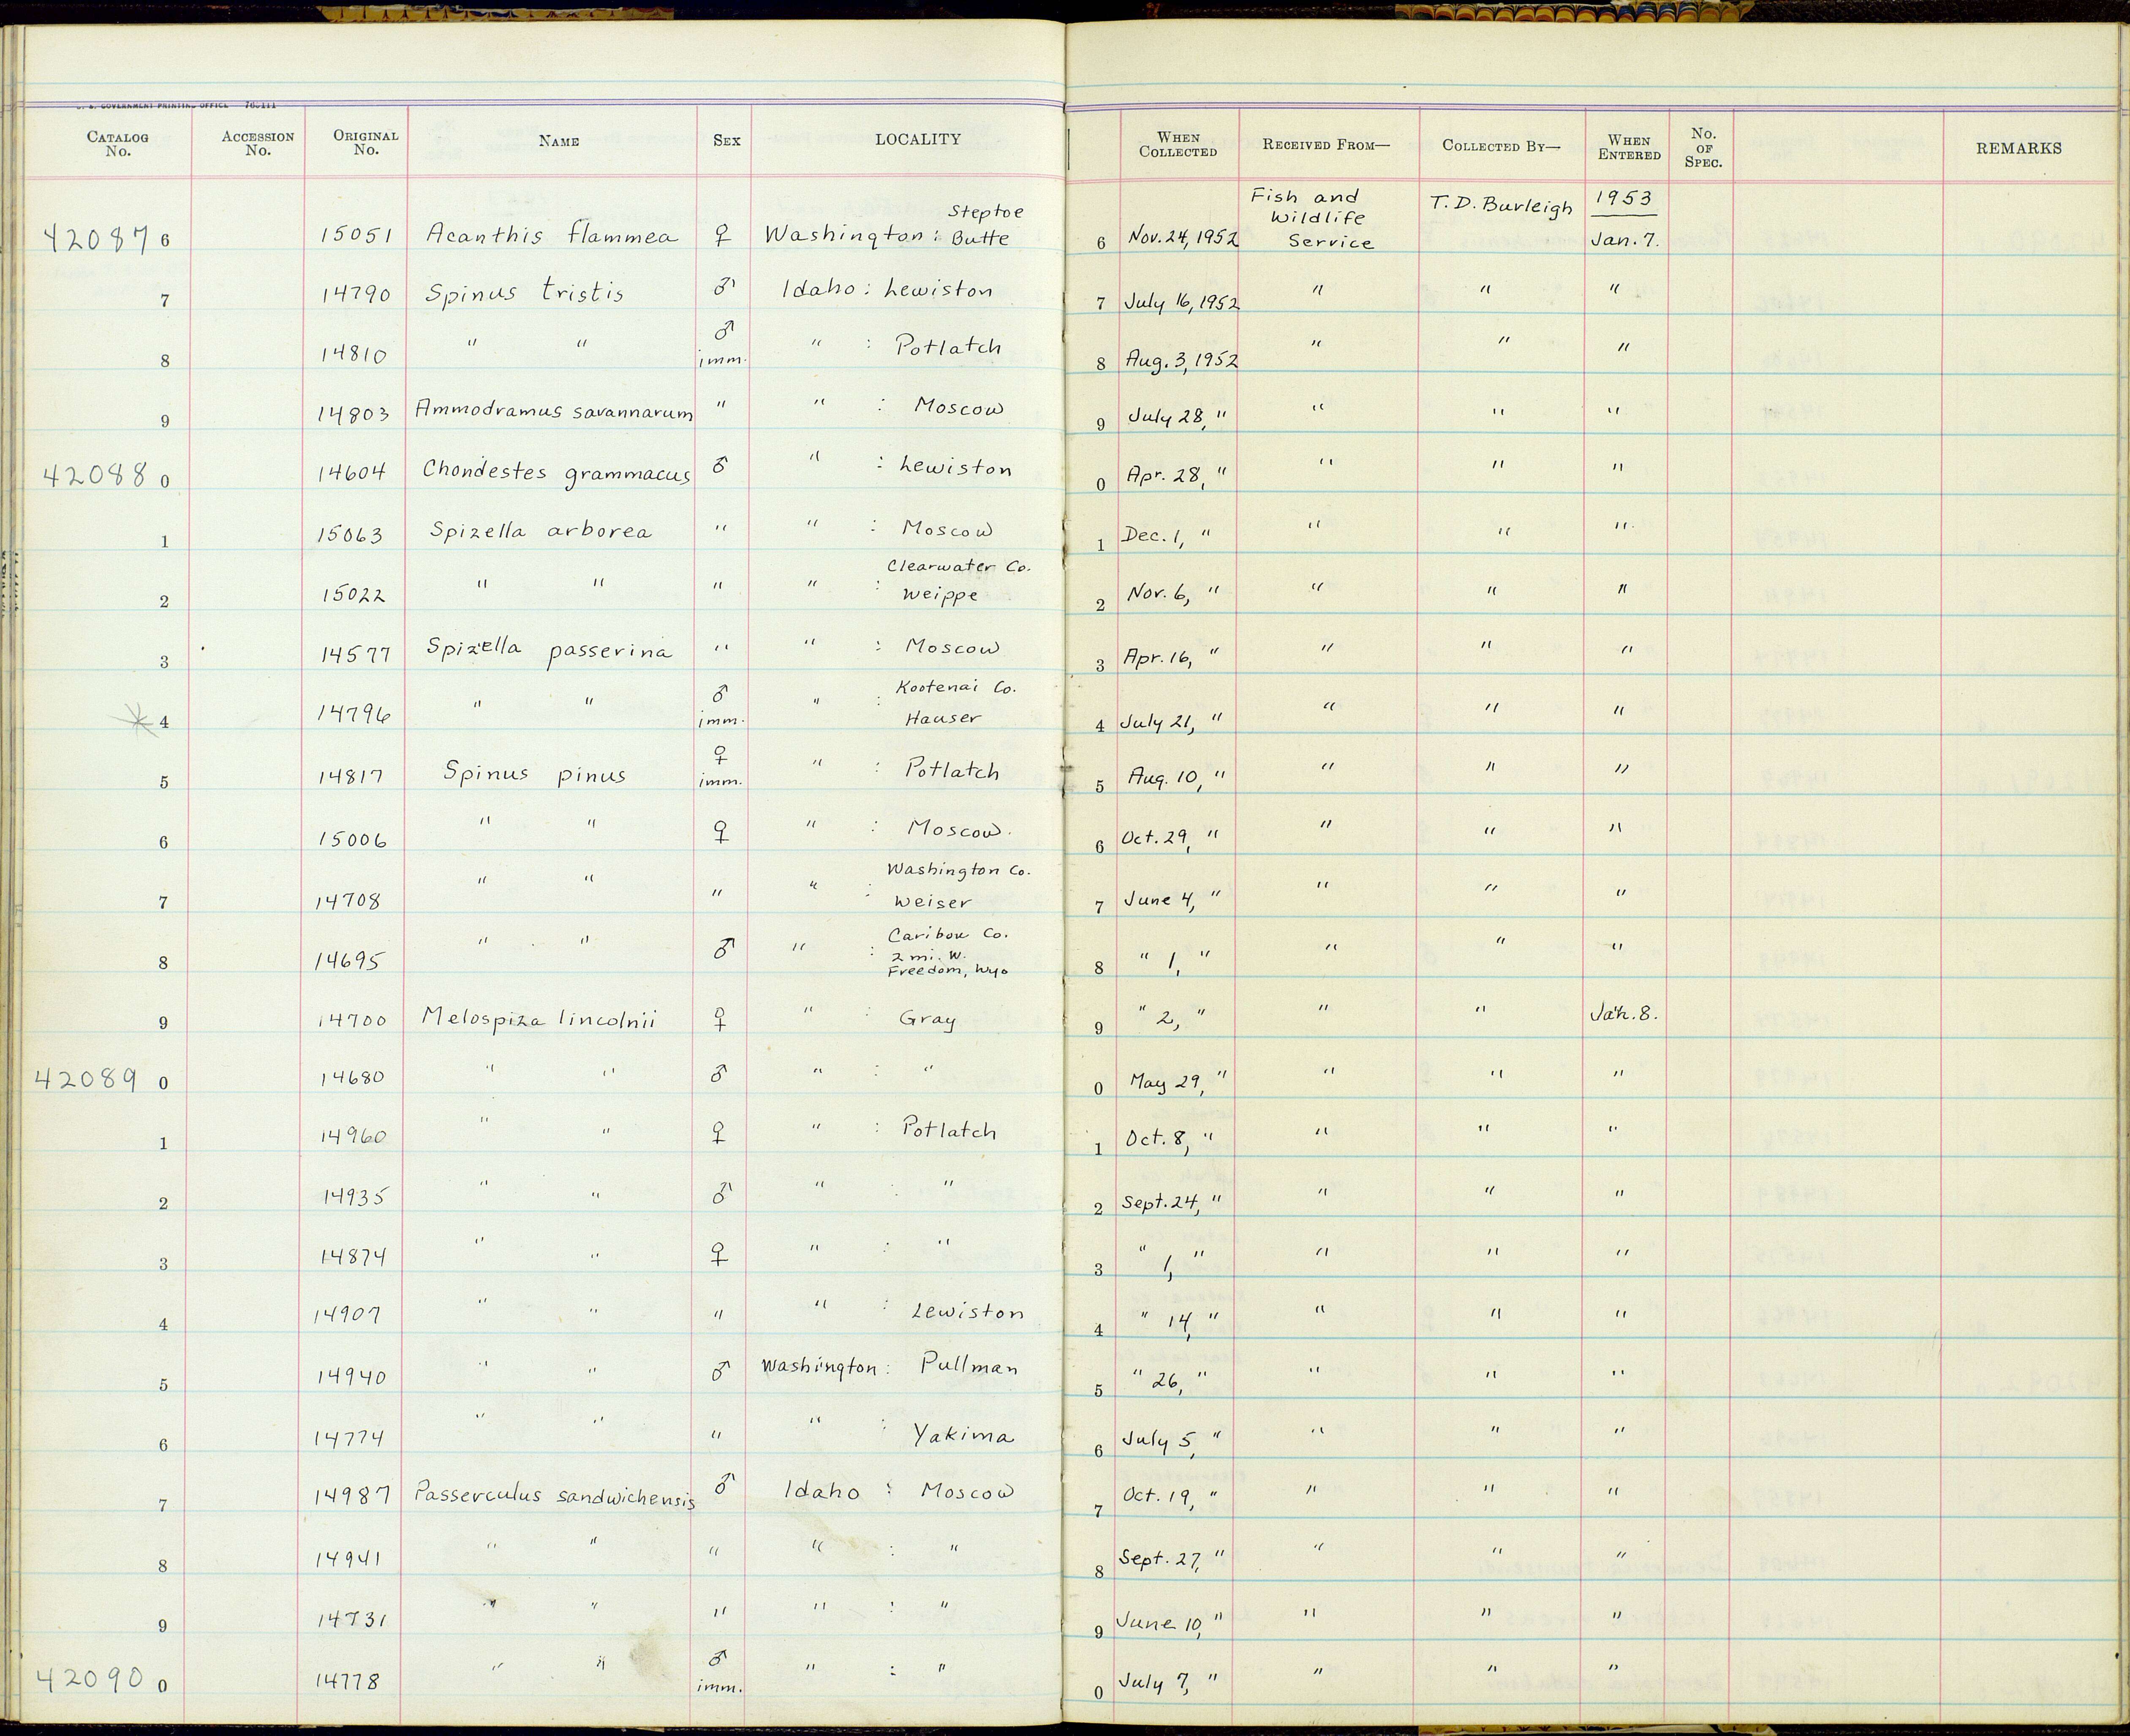 U. S. GOVERNMENT PRINTING OFFICE
CATALOG No. ACCESSION No. ORIGINAL No. NAME SEX LOCALITY WHEN COLLECTED RECEIVED FROM— COLLECTED BY— WHEN ENTERED No. OF SPEC. REMARKS
42087 6 15051 Acanthis flammea ♀ Washington : Steptoe Butte 6 Nov. 24, 1952 Fish and Wildlife Service T. D. Burleigh 1953 Jan. 7.
7 14790 Spinus tristis ♂ Idaho : Lewiston 7 July 16, 1952 " " "
8 14810 " " ♂ imm. " : Potlatch 8 Aug. 3, 1952 " " "
9 14803 Ammodramus savannarum " " : Moscow 9 July 28, " " " "
42088 0 14604 Chondestes grammacus ♂ " : Lewiston 0 Apr. 28, " " " "
1 15063 Spizella arborea " " : Moscow 1 Dec. 1, " " " "
2 15022 " " " " : Clearwater Co. Weippe 2 Nov. 6, " " " "
3 14577 Spizella passerina " " : Moscow 3 Apr. 16, " " " "
* 4 14796 " " ♂ imm. " : Kootenai Co. Hauser 4 July 21, " " " "
5 14817 Spinus pinus ♀ imm. " : Potlatch 5 Aug. 10, " " " "
6 15006 " " ♀ " : Moscow. 6 Oct. 29, " " " "
7 14708 " " " " : Washington Co. Weiser 7 June 4, " " " "
8 14695 " " ♂ " : Caribou Co. 2 mi. W. Freedom, Wyo 8 " 1, " " " "
9 14700 Melospiza lincolnii ♀ " : Gray 9 " 2, " " " Jan. 8.
42089 0 14680 " " ♂ " : " 0 May 29, " " " "
1 14960 " " ♀ " : Potlatch 1 Oct. 8, " " " "
2 14935 " " ♂ " : " 2 Sept. 24, " " " "
3 14874 " " ♀ " : " 3 " 1, " " " "
4 14907 " " " " : Lewiston 4 " 14, " " " "
5 14940 " " ♂ Washington : Pullman 5 " 26, " " " "
6 14774 " " " " : Yakima 6 July 5, " " " "
7 14987 Passerculus sandwichensis ♂ Idaho : Moscow 7 Oct. 19, " " " "
8 14941 " " " " : " 8 Sept. 27, " " " "
9 14731 " " " " : " 9 June 10, " " " "
42090 0 14778 " " ♂ imm. " : " 0 July 7, " " " "